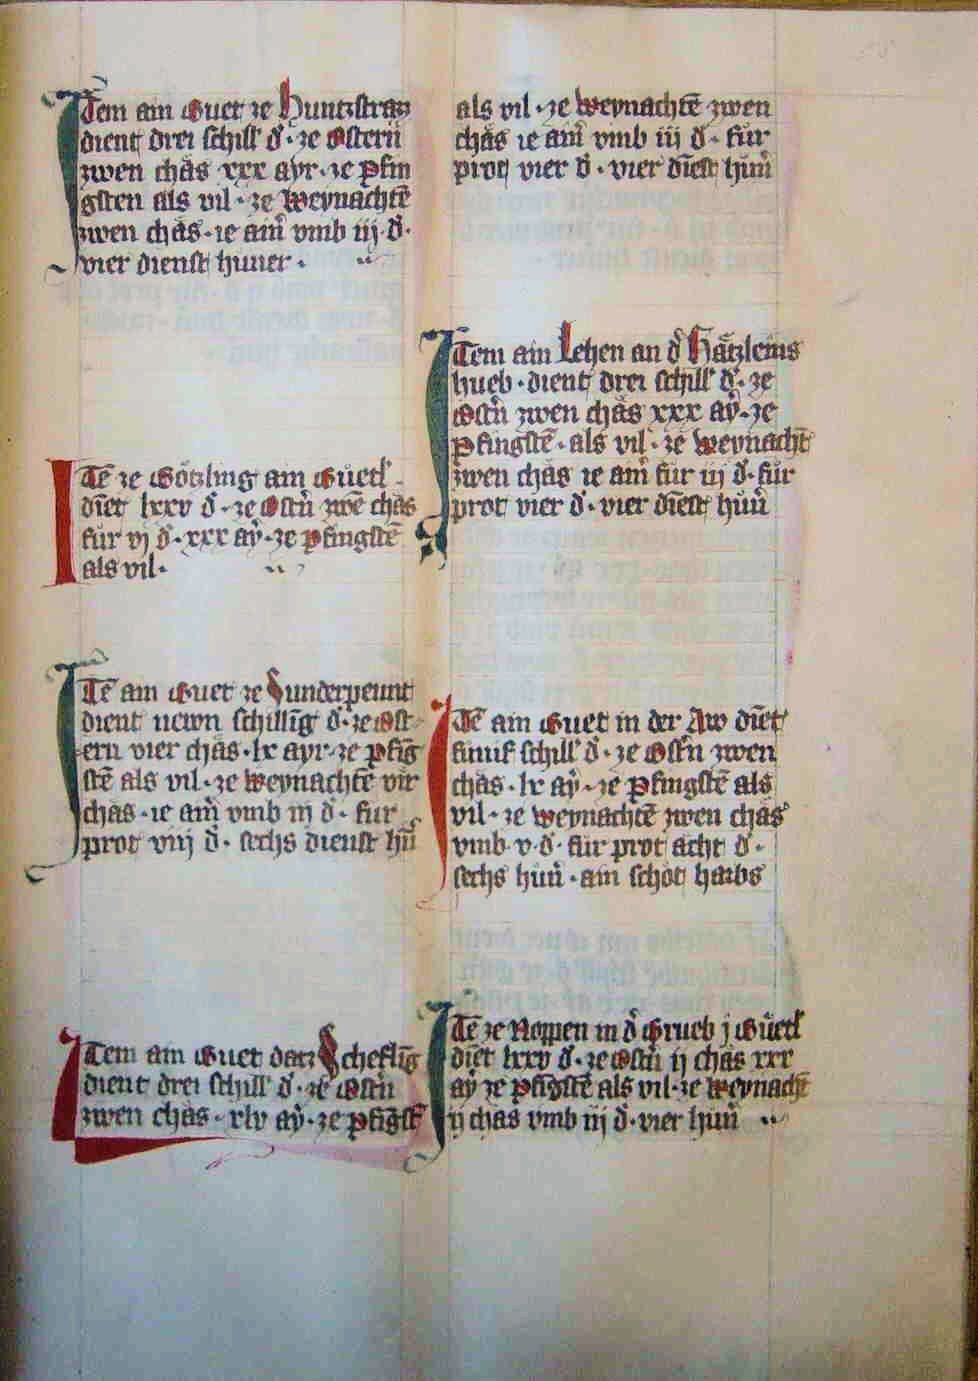 Item ain Guet ze Huntzstraz
dient drei schill d. ze Ostern
zwen chås xxx ayr. ze Pfin
gsten als vil. ze Weynachtē
zwen chås. ie ain̄ vmb iij. d.
vier dienst huner.
Itē ze Gotzling ain Guetl
dīet lxxv d. ze Ostn̄ zwē chås
für vj d. xxx aẏ. ze Pfingstē
als vil.
Itē ain Guet ze Sunderpeunt
dient newn schillīg d. ze Ost
ern vier chås. lx ayr. ze Pfīg
stē als vil. ze Weynachtē vir
chås. ie ain̄ vmb iij d. fur
prot viij d. sechs dienst hū
Item ain Guet datz Scheflīg
dient drei schill d. ze Ostn̄
zwen chås. xlv aẏ. ze Pfīgst̄
als vil. ze Weynachtē zwen
chås ie ain̄ vmb iij d. für
prot vier d. vier dīest hun̄
Item ain Lehen an d̄ Håtzleins
hueb. dient drei schill d. ze
Ostn̄ zwen chås xxx aẏ. ze
Pfingstē. als vil. ze Weynacht̄
zwen chås ie ain̄ für iij d. für
prot vier d. vier dīest hun̄
Itē ain Guet in der Aw dīet
fimif schill d. ze Ostn̄ zwen
chås. lx aẏ. ze Pfingstē als
vil. ze Weynachtē zwen chås
vmb v. d. für prot acht d.
sechs hun̄. ain schot harbs
Itē ze Noppen in d̄ Grueb j Guetl
dīet lxxv d. ze Ostn̄ ij chås xxx
aẏ ze Pfīgstē als vil. ze Weynacht̄
ij chås vmb iij d. vier hun̄